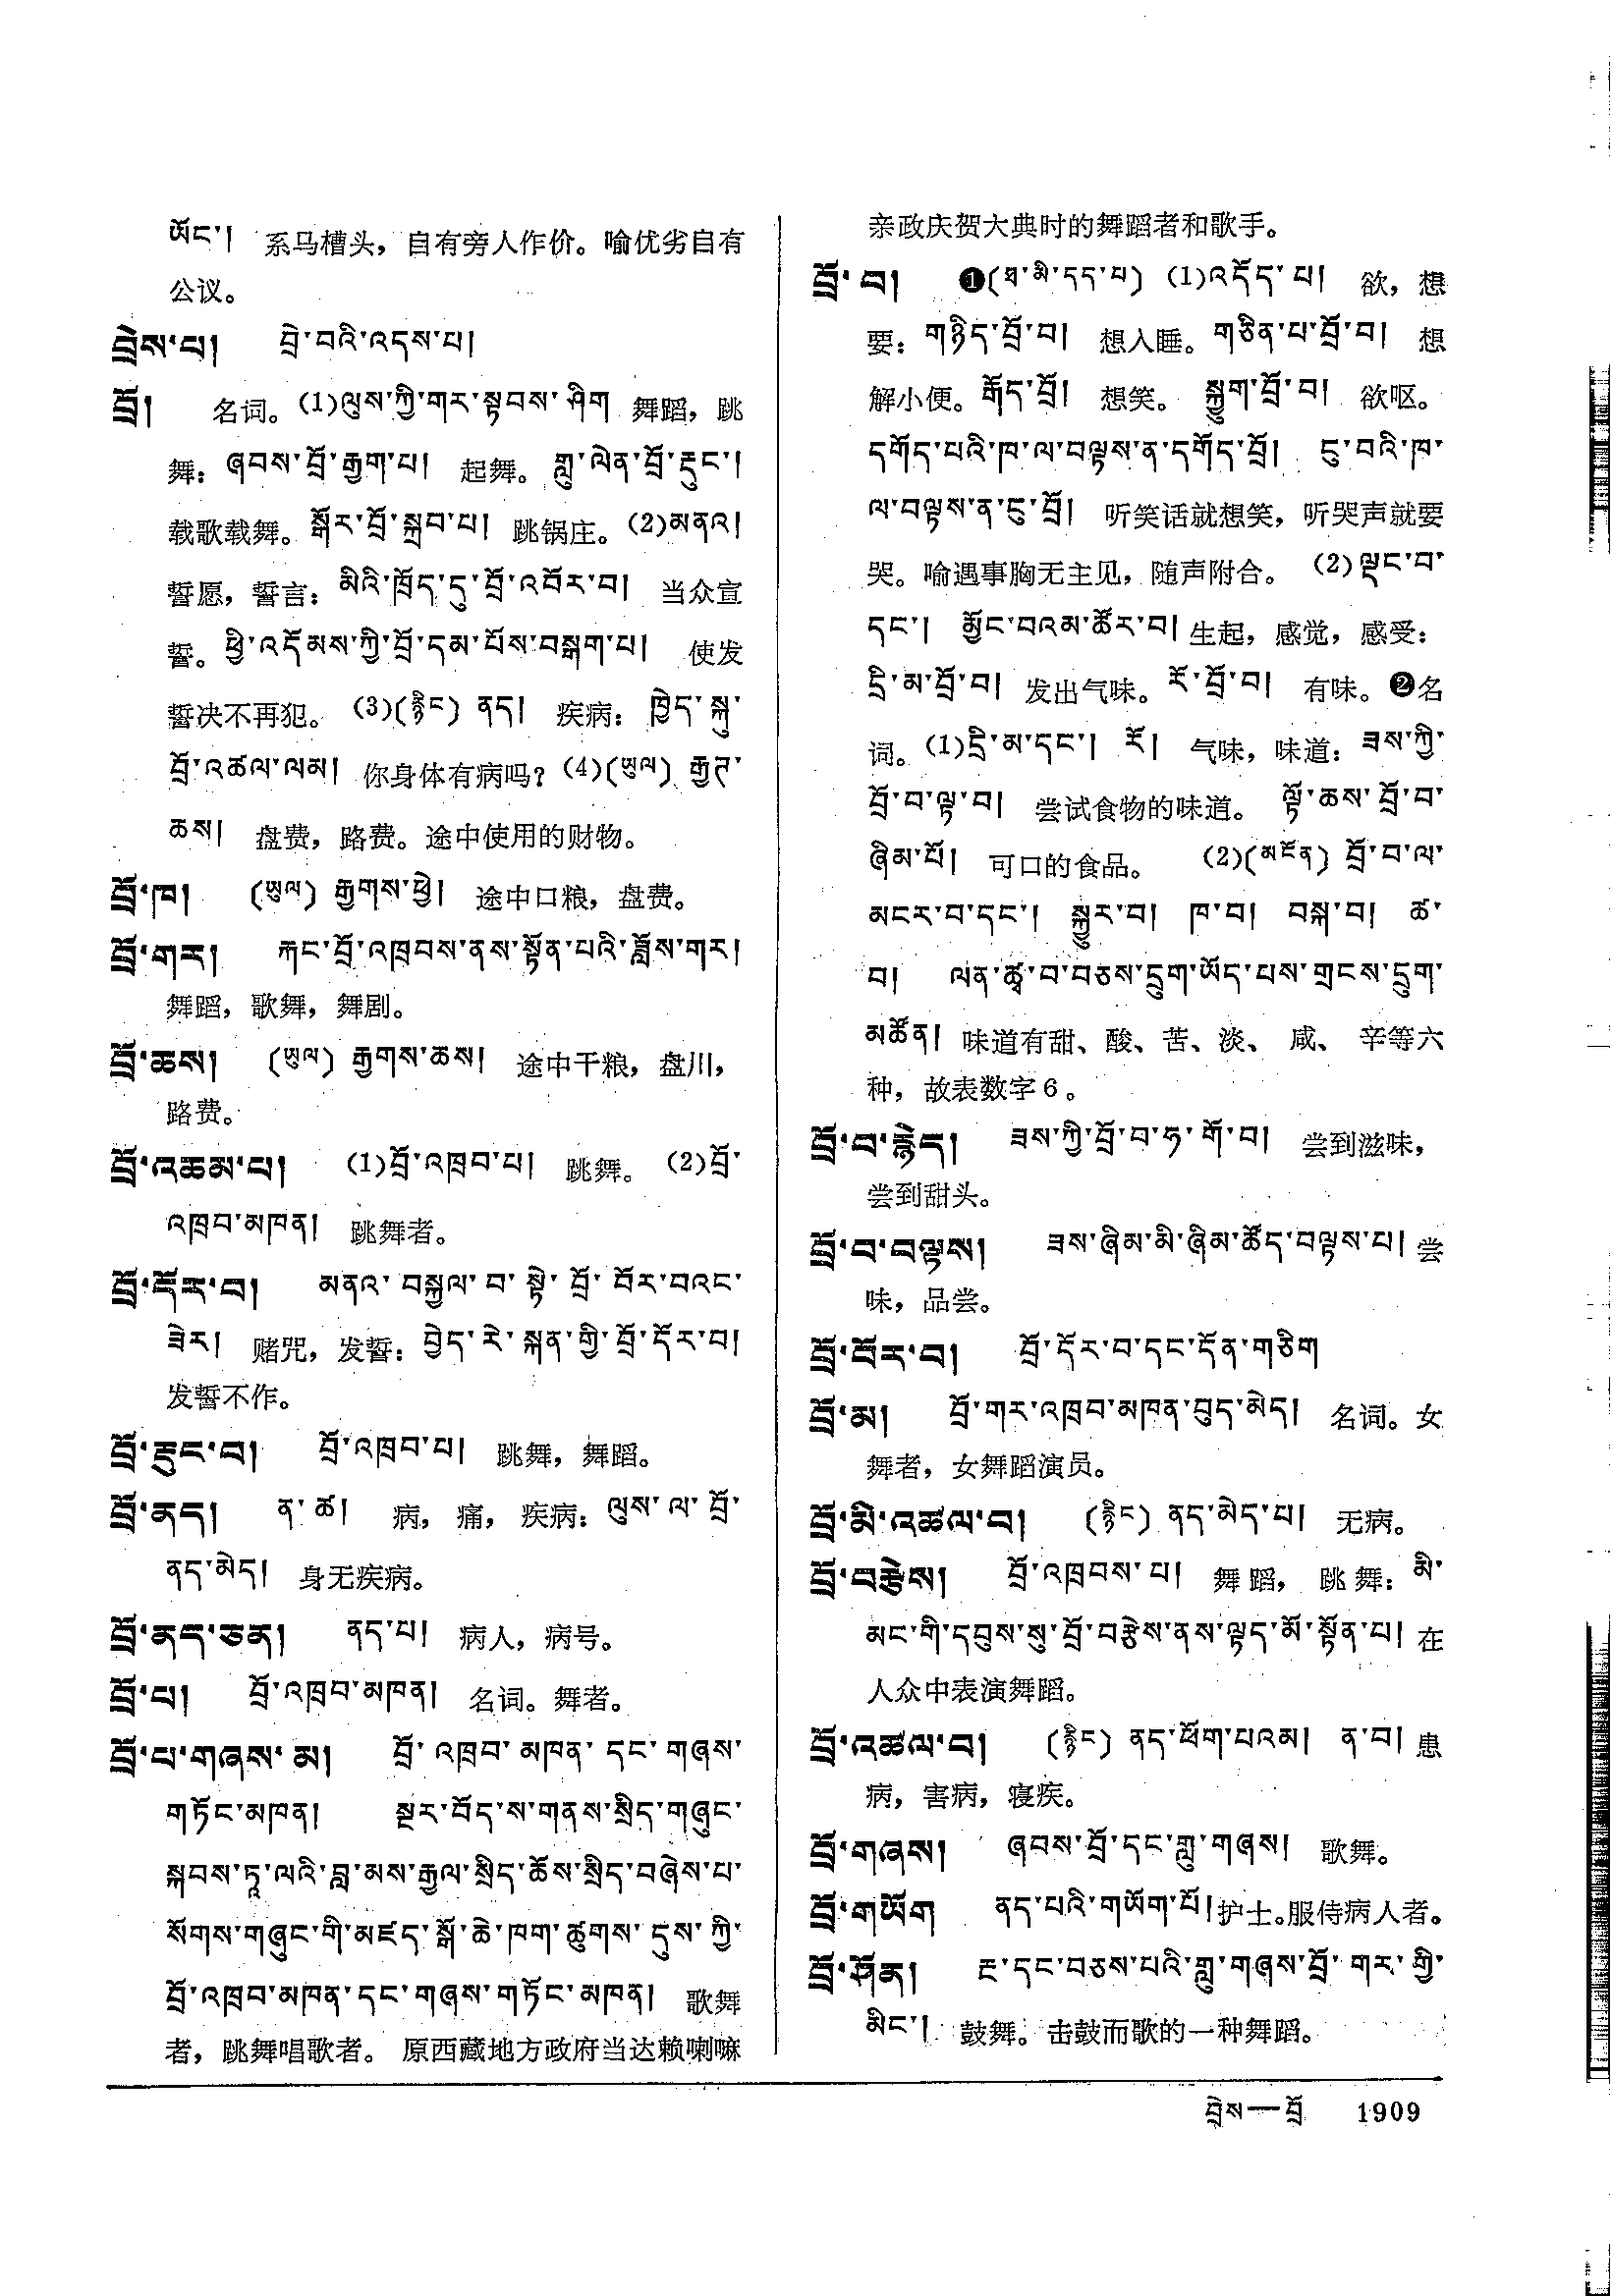 ཡོང་། 系马槽头，自有旁人作价。喻优劣自有
公议。
བྲེས་པ། བྲེ་བའི་འདས་པ།
བྲོ། 名词。(1)ལུས་ཀྱི་གར་སྟབས་ཤིག 舞蹈，跳
舞：ཞབས་བྲོ་རྒྱག་པ། 起舞。གླུ་ལེན་བྲོ་རྡུང་།
载歌载舞。སྒོར་བྲོ་སྐྲབ་པ། 跳锅庄。(2)མནའ།
誓愿，誓言：མིའི་ཁྲོད་དུ་བྲོ་འབོར་བ། 当众宣
誓。ཕྱི་འདོམས་ཀྱི་བྲོ་དམ་པོས་བསྒག་པ། 使发
誓决不再犯。(3)(རྙིང) ནད། 疾病：ཁྱེད་སྐུ་
བྲོ་འཚལ་ལམ། 你身体有病吗？(4)(ཡུལ) རྒྱ་
ཆས། 盘费，路费。途中使用的财物。
བྲོ་ཁ། (ཡུལ) རྒྱགས་ཕྱེ། 途中口粮，盘费。
བྲོ་གར། རྐང་བྲོ་འཁྲབས་ནས་སྟོན་པའི་ཟློས་གར།
舞蹈，歌舞，舞剧。
བྲོ་ཆས། (ཡུལ) རྒྱགས་ཆས། 途中干粮，盘川，
路费。
བྲོ་འཆམ་པ། (1)བྲོ་འཁྲབ་པ། 跳舞。(2)བྲོ་
འཁྲབ་མཁན། 跳舞者。
བྲོ་དོར་བ། མནའ་བསྐྱལ་བ་སྟེ་བྲོ་བོར་བའང་
ཟེར། 赌咒，发誓：བྱེད་རེ་སྐན་གྱི་བྲོ་དོར་བ།
发誓不作。
བྲོ་རྡུང་བ། བྲོ་འཁྲབ་པ། 跳舞，舞蹈。
བྲོ་ནད། ན་ཚ། 病，痛，疾病：ལུས་ལ་བྲོ་
ནད་མེད། 身无疾病。
བྲོ་ནད་ཅན། ནད་པ། 病人，病号。
བྲོ་པ། བྲོ་འཁྲབ་མཁན། 名词。舞者。
བྲོ་པ་གཞས་མ། བྲོ་འཁྲབ་མཁན་དང་གཞས་
གཏོང་མཁན། སྔར་བོད་ས་གནས་སྲིད་གཞུང་
སྐབས་ཏཱ་ལའི་བླ་མས་རྒྱལ་སྲིད་ཆོས་སྲིད་བཞེས་པ་
སོགས་གཞུང་གི་མཛད་སྒོ་ཆེ་ཁག་ཚུགས་དུས་ཀྱི་
བྲོ་འཁྲབ་མཁན་དང་གཞས་གཏོང་མཁན། 歌舞
者，跳舞唱歌者。原西藏地方政府当达赖喇嘛
亲政庆贺大典时的舞蹈者和歌手。
བྲོ་བ། ❶(ཐ་མི་དད་པ) (1)འདོད་པ། 欲，想
要：གཉིད་བྲོ་བ། 想入睡。གཅིན་པ་བྲོ་བ། 想
解小便。རྒོད་བྲོ། 想笑。སྐྱུག་བྲོ་བ། 欲呕。
དགོད་པའི་ཁ་ལ་བལྟས་ན་དགོད་བྲོ། ངུ་བའི་ཁ་
ལ་བལྟས་ན་ངུ་བྲོ། 听笑话就想笑，听哭声就要
哭。喻遇事胸无主见，随声附合。(2)ལྡང་བ་
དང་། མྱོང་བའམ་ཚོར་བ། 生起，感觉，感受：
དྲི་མ་བྲོ་བ། 发出气味。རོ་བྲོ་བ། 有味。❷名
词。(1)དྲི་མ་དང་། རོ། 气味，味道：ཟས་ཀྱི་
བྲོ་བ་ལྟ་བ། 尝试食物的味道。ལྟོ་ཆས་བྲོ་བ་
ཞིམ་པོ། 可口的食品。(2)(མངོན) བྲོ་བ་ལ་
མངར་བ་དང་། སྐྱུར་བ། ཁ་བ། བསྐ་བ། ཚ་
བ། ལན་ཚྭ་བ་བཅས་དྲུག་ཡོད་པས་གྲངས་དྲུག་
མཚོན། 味道有甜、酸、苦、淡、咸、辛等六
种，故表数字6。
བྲོ་བ་རྙེད། ཟས་ཀྱི་བྲོ་བ་ཧ་གོ་བ། 尝到滋味，
尝到甜头。
བྲོ་བ་བལྟས། ཟས་ཞིམ་མི་ཞིམ་ཚོད་བལྟས་པ། 尝
味，品尝。
བྲོ་བོར་བ། བྲོ་དོར་བ་དང་དོན་གཅིག
བྲོ་མ། བྲོ་གར་འཁྲབ་མཁན་བུད་མེད། 名词。女
舞者，女舞蹈演员。
བྲོ་མི་འཚལ་བ། (རྙིང) ནད་མེད་པ། 无病。
བྲོ་བརྩེས། བྲོ་འཁྲབས་པ། 舞蹈，跳舞：མི་
མང་གི་དབུས་སུ་བྲོ་བརྩེས་ནས་ལྟད་མོ་སྟོན་པ། 在
人众中表演舞蹈。
བྲོ་འཚལ་བ། (རྙིང) ནད་ཕོག་པའམ། ན་བ། 患
病，害病，寝疾。
བྲོ་གཞས། ཞབས་བྲོ་དང་གླུ་གཞས། 歌舞。
བྲོ་གཡོག ནད་པའི་གཡོག་པོ། 护士。服侍病人者。
བྲོ་ཤོན། རྔ་དང་བཅས་པའི་གླུ་གཞས་བྲོ་གར་གྱི་
མིང་། 鼓舞。击鼓而歌的一种舞蹈。
བྲེས—བྲོ 1909